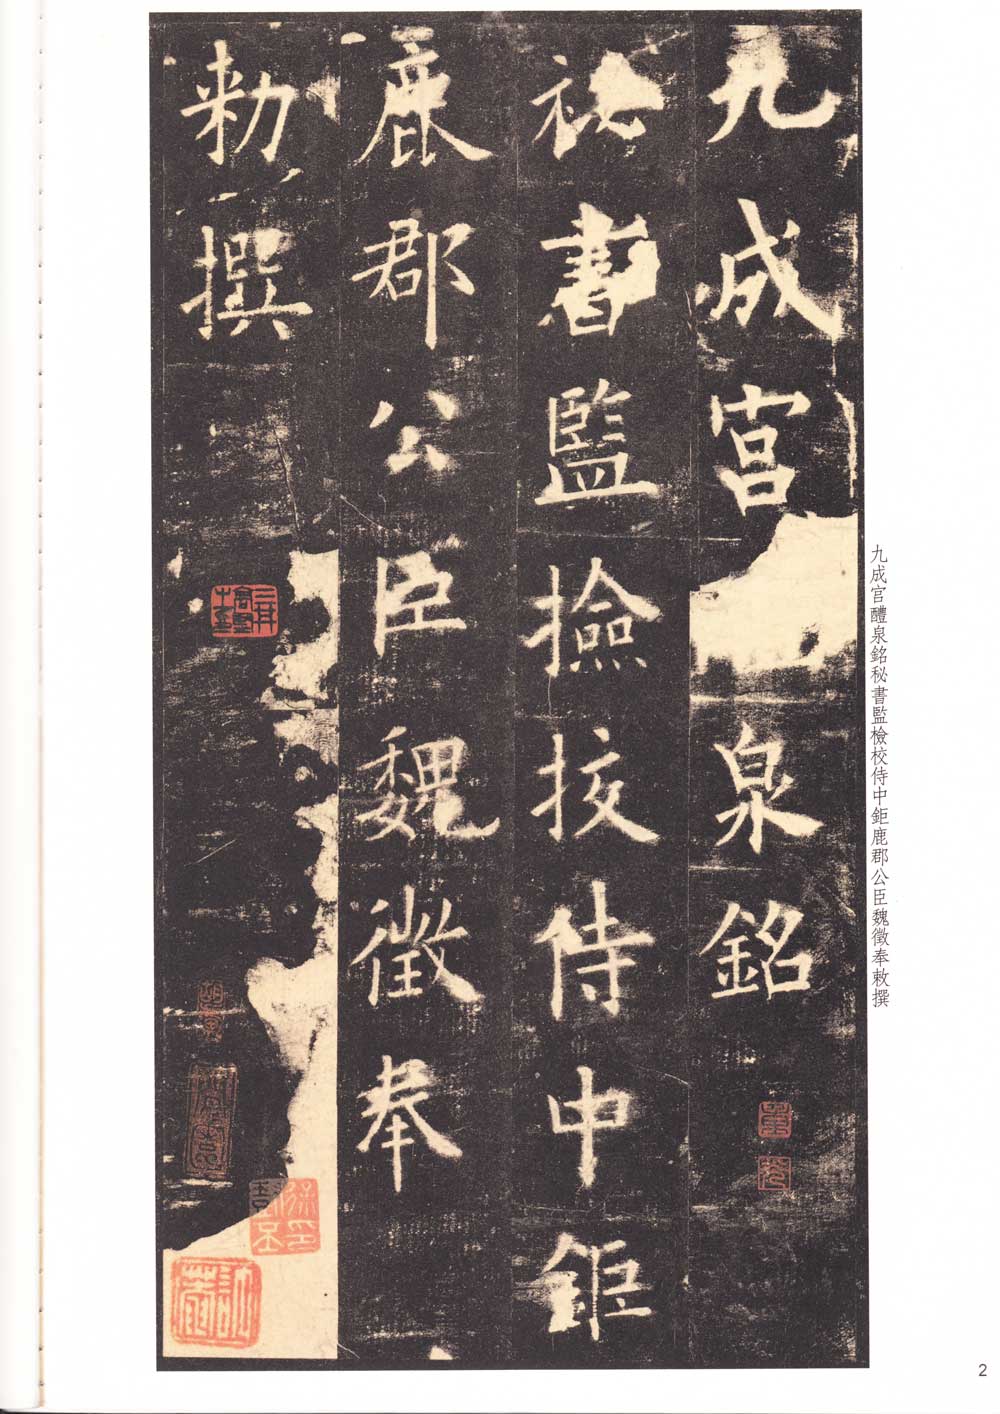 九成宮泉銘
秘書監撿挍侍中鉅
鹿郡公臣魏徵奉
勅撰
九成宮醴泉銘秘書監檢校侍中鉅鹿郡公臣魏徵奉敕撰
2